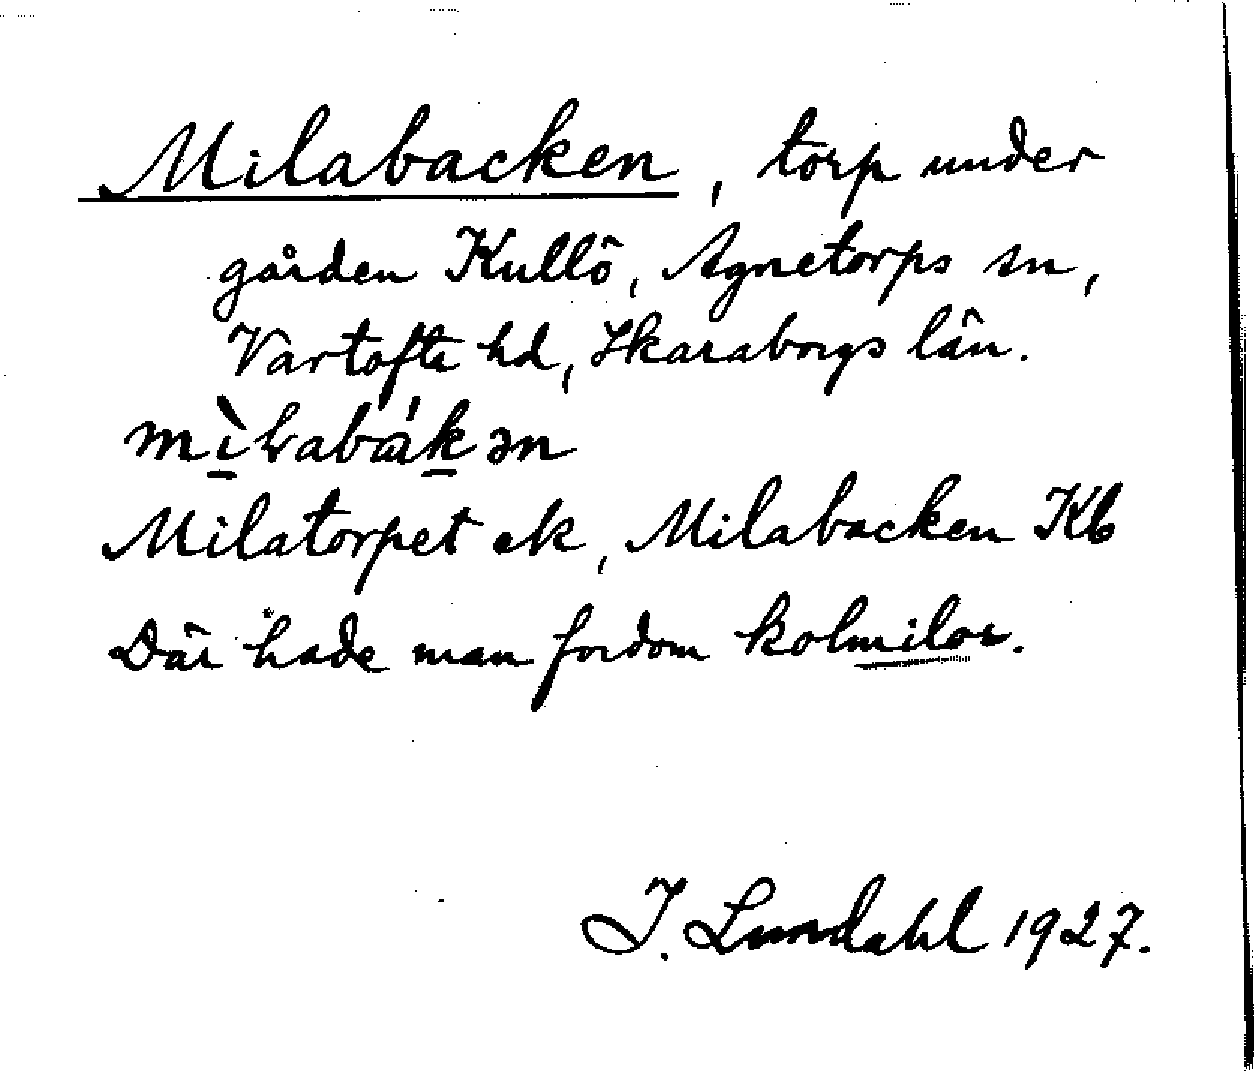 Milabacken, torp under
gården Kullö, Agnetorps sn,
Vartofta hd, Skaraborgs län.
Milatorpet ek, Milabacken Kb
Där hade man fordom kolmilor.
I. Lundahl 1927.